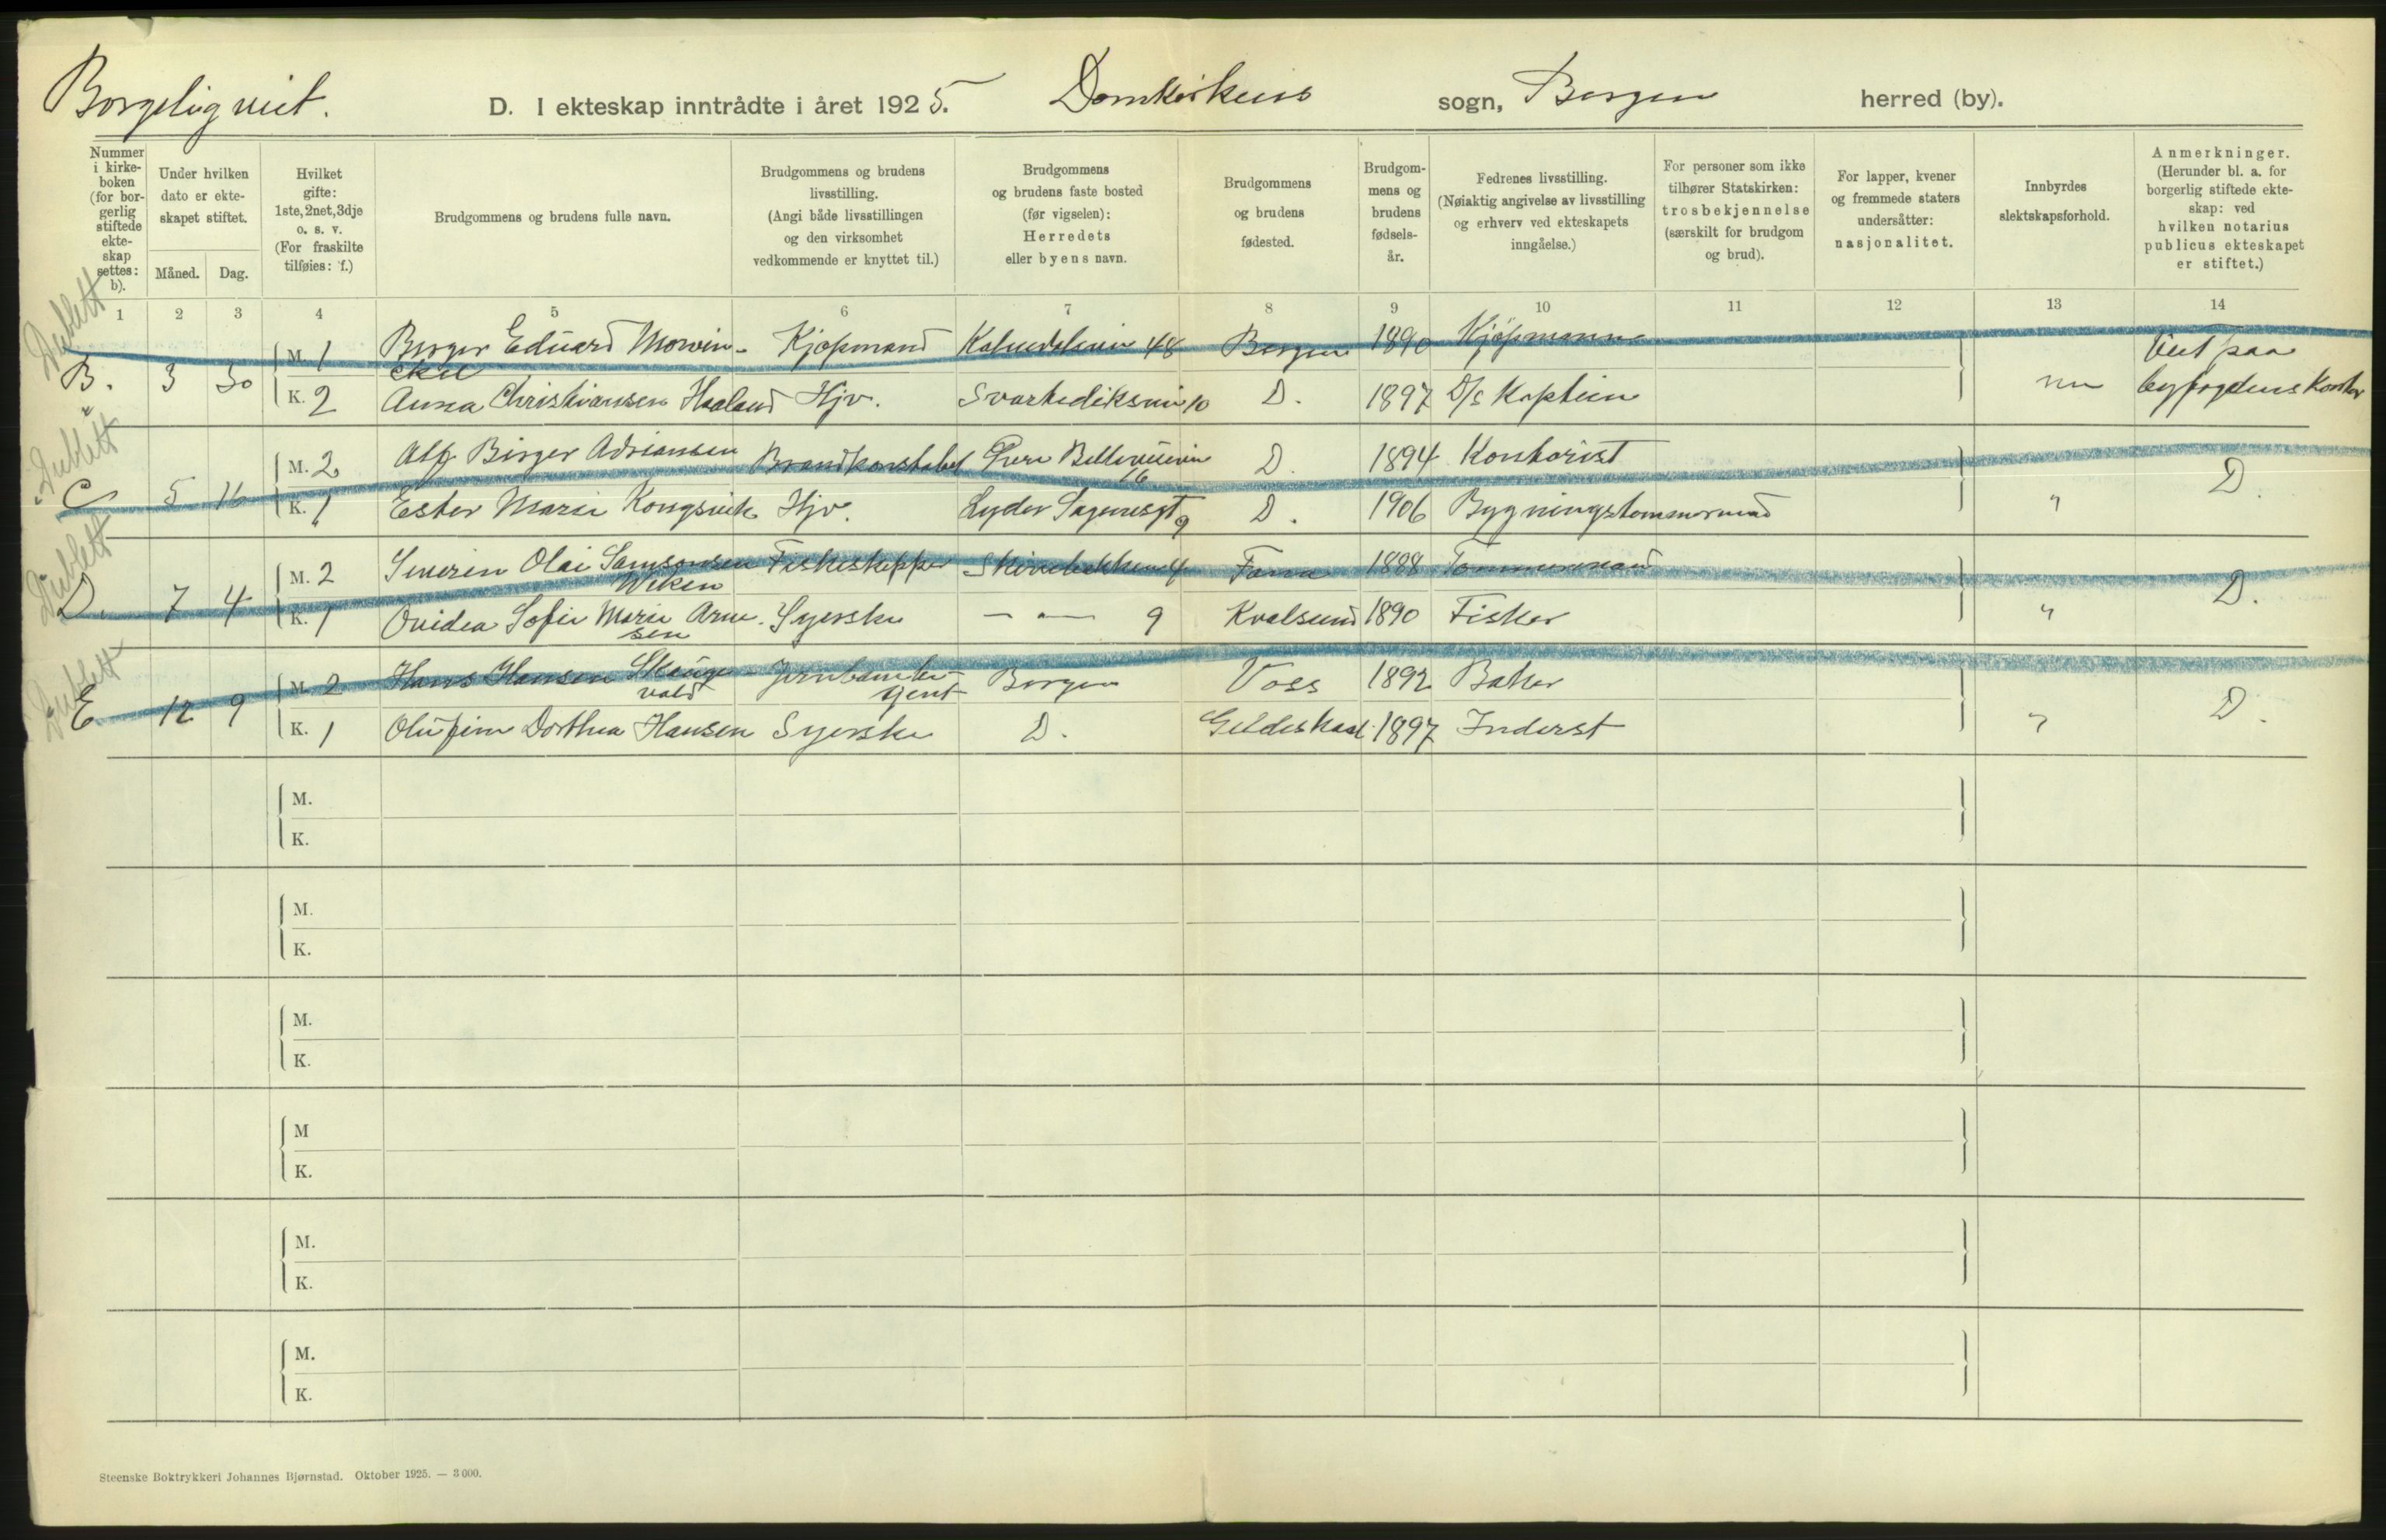 Borgelig viet. D. I ekteskap inntrådte i året 1925. Domkirkens sogn, Bergen herred (by).
Nummer i kirke- boken (for bor- gerlig stiftede ekte- skap settes: b).
Under hvilken dato er ekte- skapet stiftet.
Måned. Dag.
Hvilket gifte: 1ste, 2net, 3dje o. s. v. (For fraskilte tilføies: f.)
Brudgommens og brudens fulle navn.
Brudgommens og brudens livsstilling. (Angi både livsstillingen og den virksomhet vedkommende er knyttet til.)
Brudgommens og brudens faste bosted (før vigselen): Herredets eller byens navn.
Brudgommens og brudens fødested.
Brudgom- mens og brudens fødsels- år.
Fedrenes livsstilling. (Nøiaktig angivelse av livsstilling og erhverv ved ekteskapets inngåelse.)
For personer som ikke tilhører Statskirken: trosbekjennelse (særskilt for brudgom og brud).
For lapper, kvener og fremmede staters undersåtter: nasjonalitet.
Innbyrdes slektskapsforhold.
Anmerkninger. (Herunder bl. a. for borgerlig stiftede ekte- skap: ved hvilken notarius publicus ekteskapet er stiftet.)
1 2 3 4 5 6 7 8 9 10 11 12 13 14
Dublett
M. 1 Birger Eduard Mowin- Kjøpmand 48 Bergen 1890 Kjøpmann Viet paa
B. 3 30 ckel
K. 2 Anna Christiansen Haaland Hjv. Svartediksvei 10 D. 1897 D/S Kaptein byfogdens Kontor
Dublett
M. 2 Alf Birger Adriansen Brandkonstabel Øvre Bellevueveien 16 D. 1894 Kontorist D.
C 5 16
K. 1 Ester Marie Kongsvik Hjv. Lyder Sagensgt 9 D. 1906 Bygningstømmermand "
Dublett
M. 2 Severin Olai Samsonsen Fiskeskipper Skivebakken 4 Fana 1888 Tømmermand D.
D. 7 4 Wiken
K. 1 Ovidea Sofie Marie Arne- Syerske — " — 9 Kvalsund 1890 Fisker "
sen
Dublett
M. 2 Hans Hansen Skauge- Bergen Voss 1892 Baker
E 12 9 vold gent D.
K. 1 Olufine Dorthea Hansen Syerske D. Gildeskaal 1897 Inderst "
M.
K.
M.
K.
M.
K.
M
K.
M.
K.
M.
K.
Steenske Boktrykkeri Johannes Bjørnstad. Oktober 1925. — 3 000.